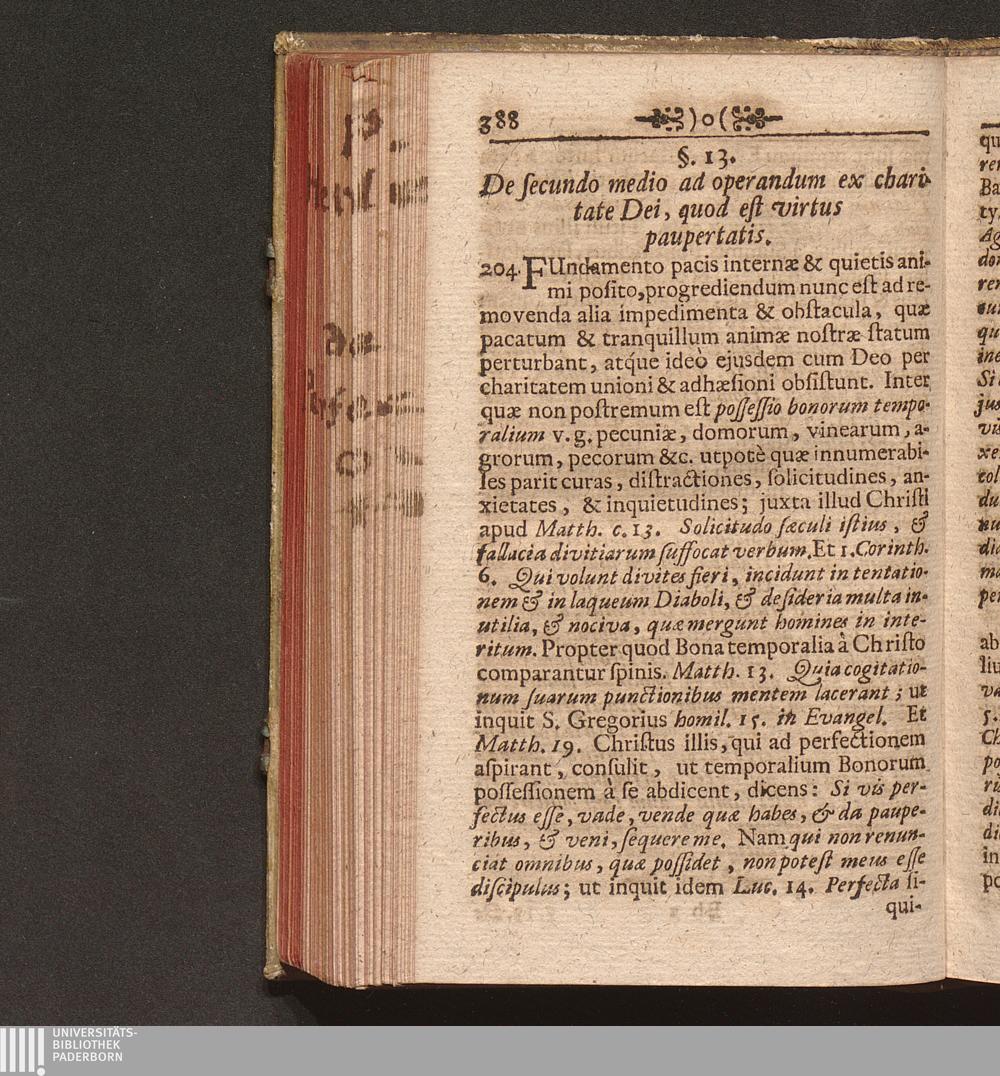 388 )o(
§. 13.
De ſecundo medio ad operandum ex chari-
tate Dei, quod eſt virtus
paupertatis.
204. FUndamento pacis internæ & quietis ani-
mi poſito, progrediendum nunc eſt ad re-
movenda alia impedimenta & obſtacula, quæ
pacatum & tranquillum animæ noſtræ ſtatum
perturbant, atq́ue ideò ejusdem cum Deo per
charitatem unioni & adhæſioni obſiſtunt. Inter
quæ non poſtremum eſt poſſeſſio bonorum tempo-
ralium v. g. pecuniæ, domorum, vinearum, a-
grorum, pecorum &c. utpotè quæ innumerabi-
les parit curas, diſtractiones, ſolicitudines, an-
xietates, & inquietudines; juxta illud Chriſti
apud Matth. c. 13. Solicitudo ſæculi iſtius, &
fallacia divitiarum ſuffocat verbum. Et 1. Corinth.
6. Qui volunt divites fieri, incidunt in tentatio-
nem & in laqueum Diaboli, & deſideria multa in-
utilia, & nociva, quæ mergunt homines in inte-
ritum. Propter quod Bona temporalia à Chriſto
comparantur ſpinis. Matth. 13. Quia cogitatio-
num ſuarum punctionibus mentem lacerant; ut
inquit S. Gregorius homil. 15. in Evangel. Et
Matth. 19. Chriſtus illis, qui ad perfectionem
aſpirant, conſulit, ut temporalium Bonorum
poſſeſſionem à ſe abdicent, dicens: Si vis per-
fectus eſſe, vade, vende quæ habes, & da paupe-
ribus, & veni, ſequere me. Nam qui non renun-
ciat omnibus, quæ poſſidet, non poteſt meus eſſe
diſcipulus; ut inquit idem Luc. 14. Perfecta ſi-
qui-
UNIVERSITÄTS-
BIBLIOTHEK
PADERBORN